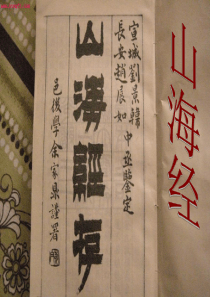 宣城劉景韓中丞鑒定
長安趙展如
山海經存
邑後學余家鼎謹署
山海经